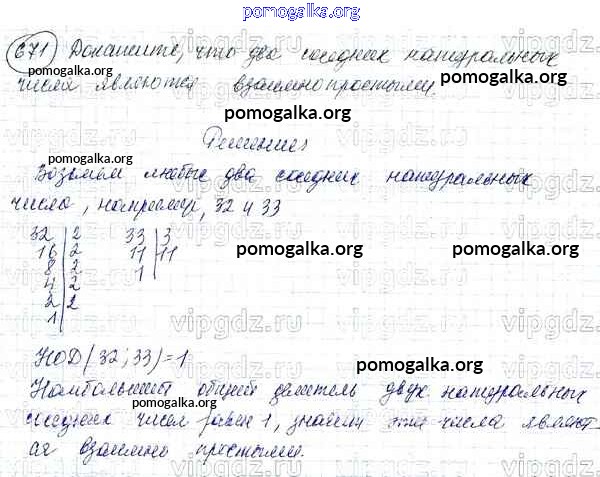 pomogalka.org
671 Докажите, что два соседних натуральных
pomogalka.org pomogalka.org
числа являются взаимнопростыми.
pomogalka.org pomogalka.org
Решение:
pomogalka.org
Возьмем любые два соседних натуральных
vipgdz.ru
числа, например, 32 и 33
32 | 2 33 | 3
16 | 2 11 | 11
8 | 2 1
4 | 2
2 | 2
1
pomogalka.org pomogalka.org
vipgdz.ru vipgdz.ru
НОД(32; 33)=1
pomogalka.org pomogalka.org
Наибольший общий делитель двух натуральных
соседних чисел равен 1, значит эти числа являют
pomogalka.org
ся взаимно простыми.
vipgdz.ru